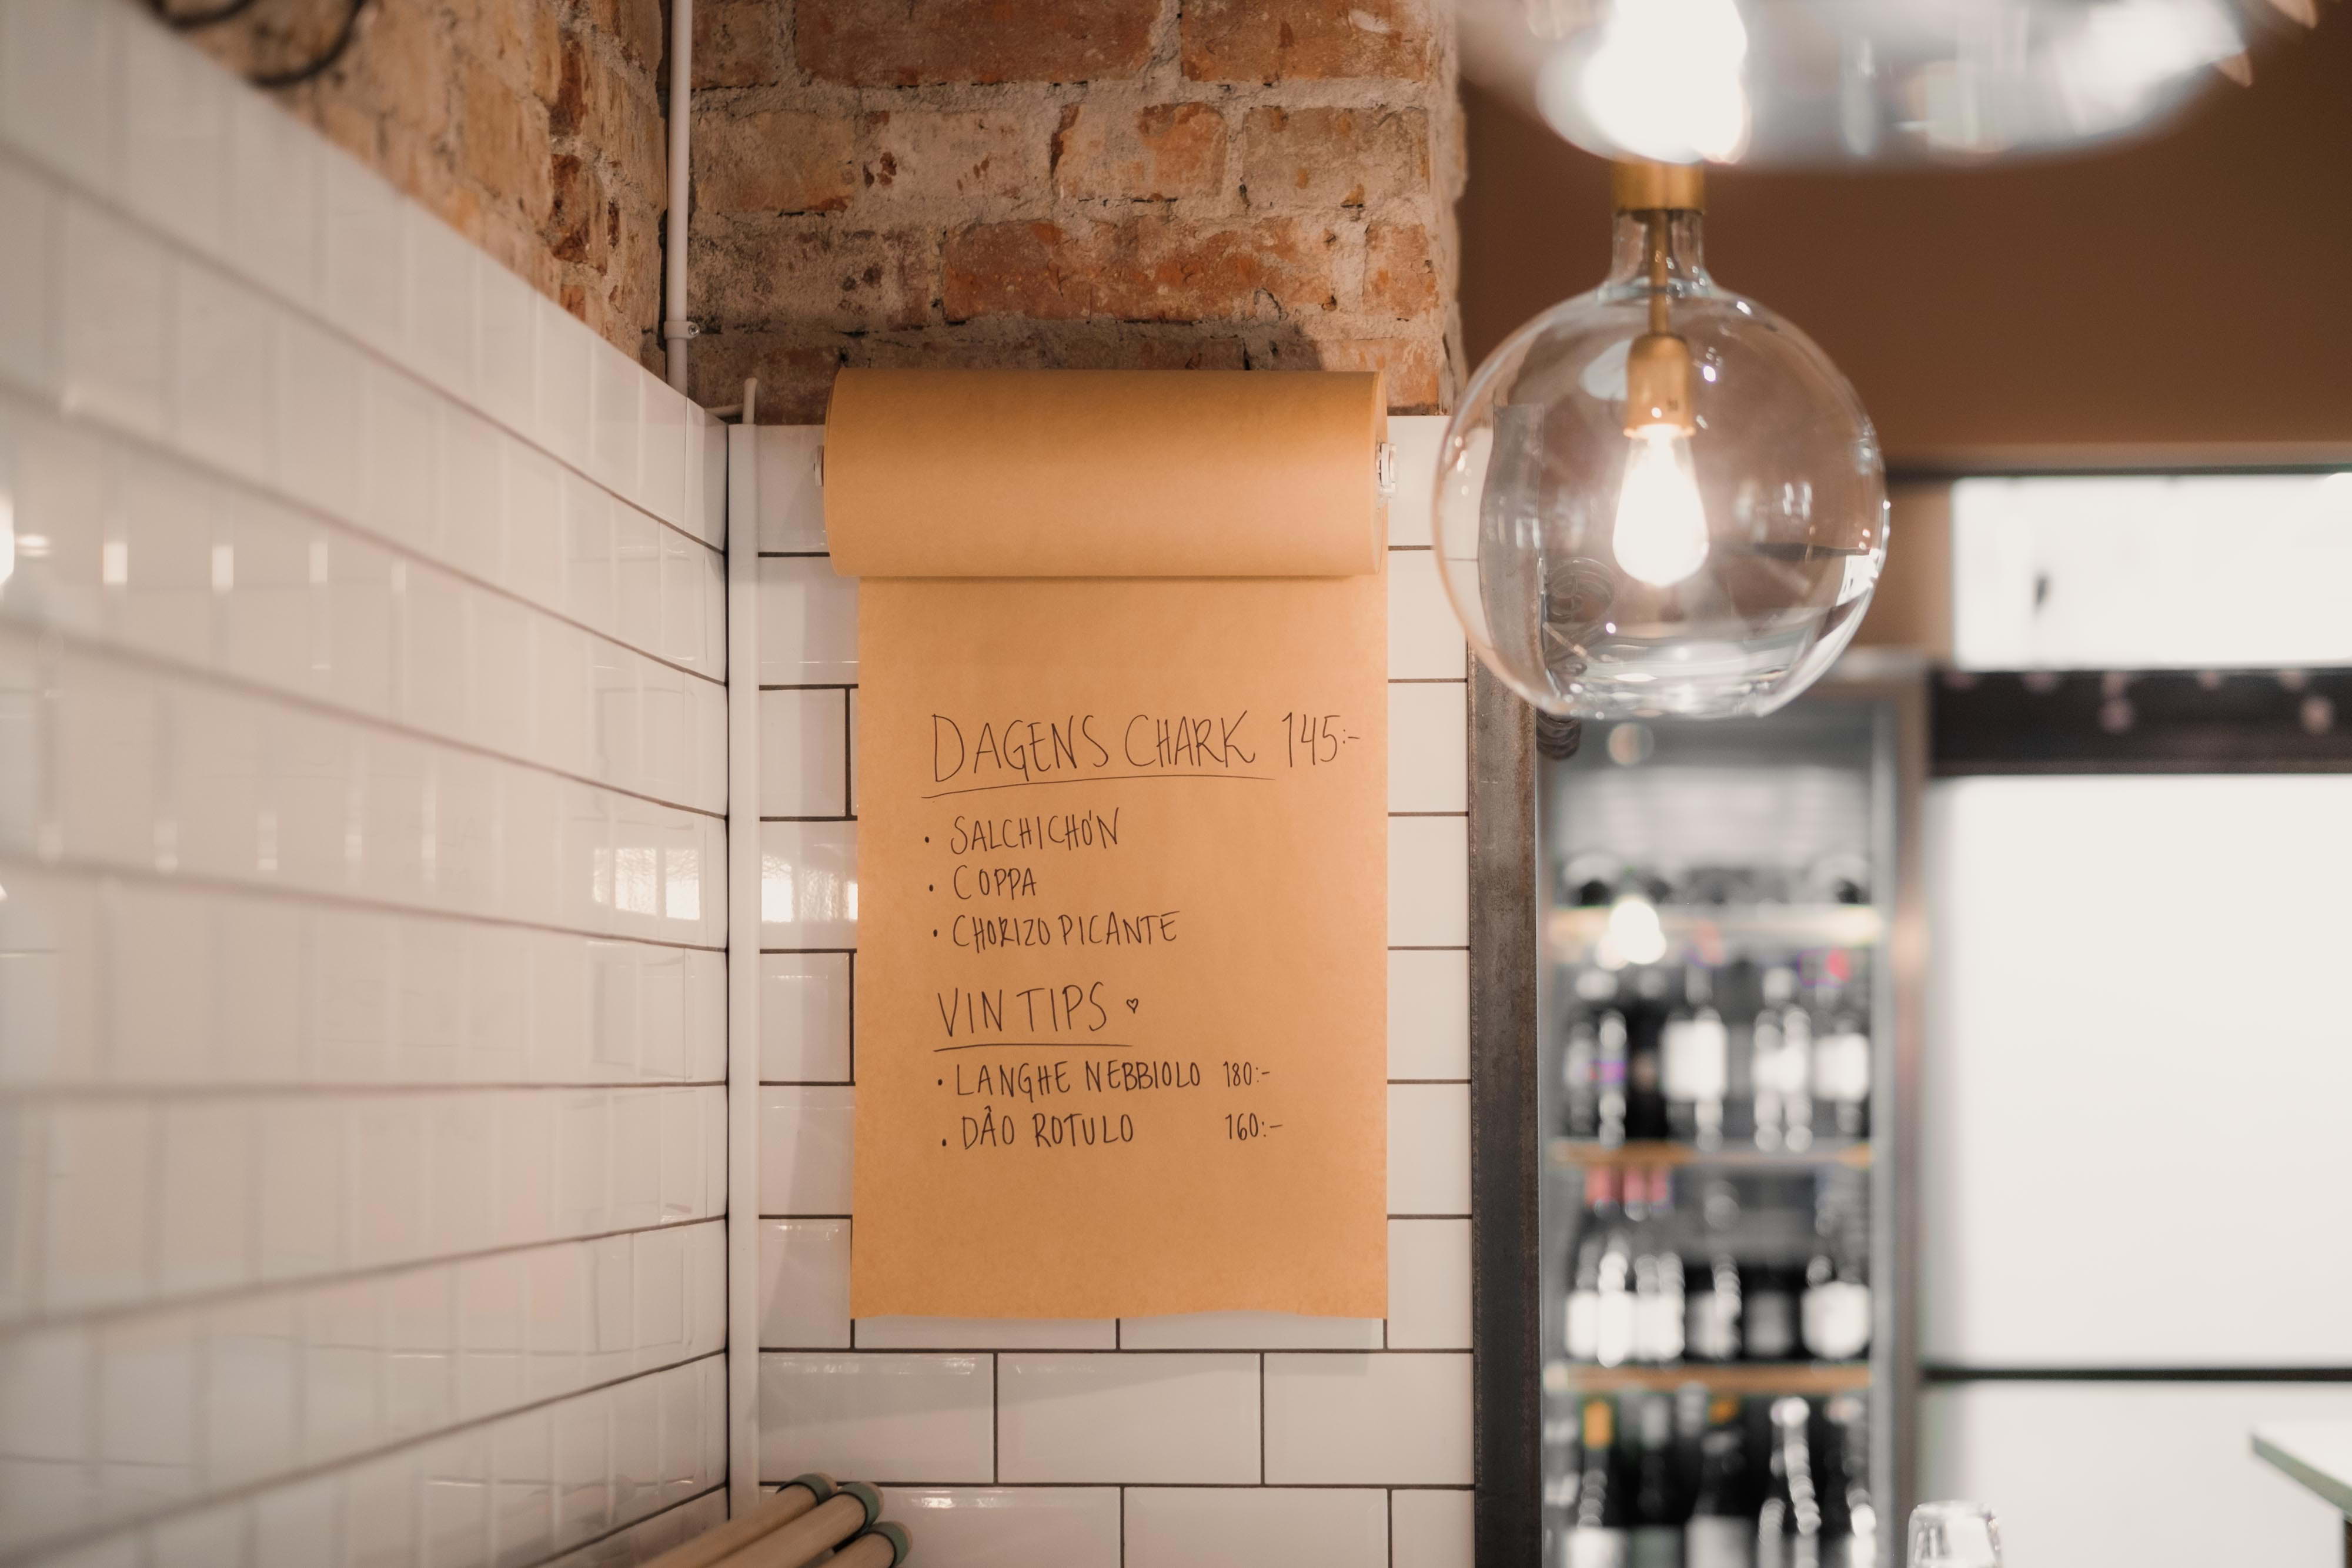 DAGENS CHARK 145:-
• SALCHICHÓN
• COPPA
• CHORIZO PICANTE
VIN TIPS ♡
• LANGHE NEBBIOLO 180:-
• DÃO ROTULO 160:-